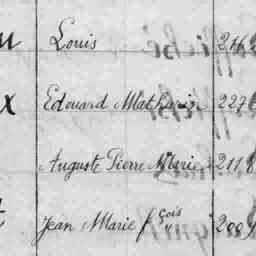 Louis
x Edouard Mathurin 227
Auguste Pierre Marie 2118
Jean Marie fçois 2009